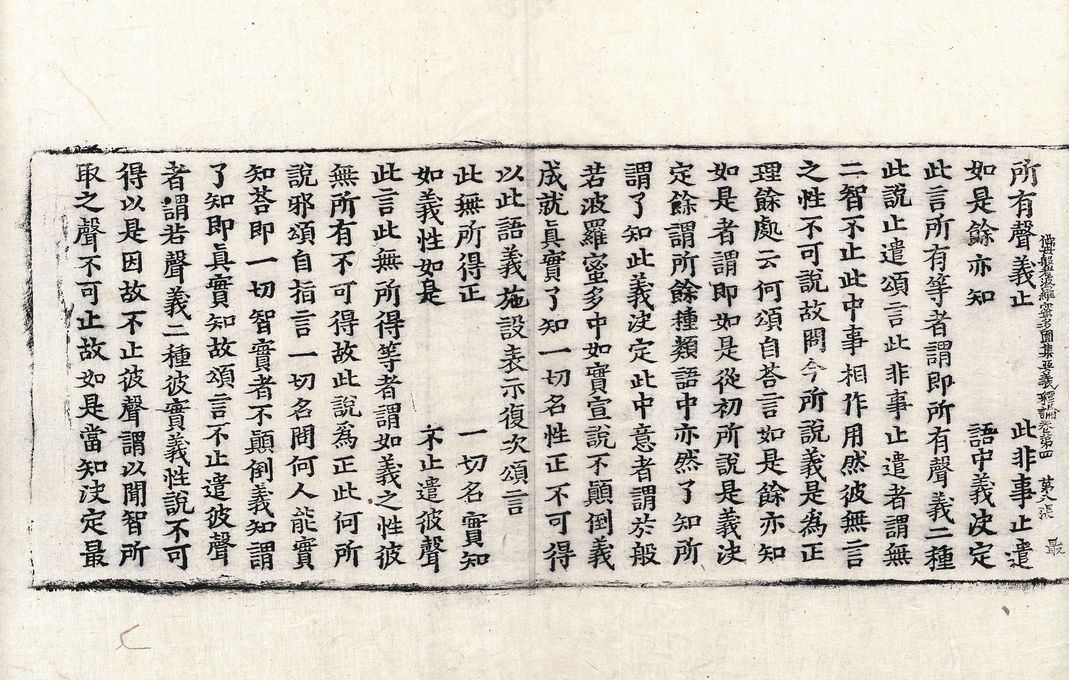 佛母般若波羅蜜多圓集要義釋論卷第四　第八張　最
所有聲義止　此非事止遣
如是餘亦知　語中義決定
此言所有等者謂即所有聲義二種
此說止遣頌言此非事止遣者謂無
二智不止此中事相作用然彼無言
之性不可說故問今所說義是為正
理餘處云何頌自荅言如是餘亦知
如是者謂即如是從初所說是義決
定餘謂所餘種類語中亦然了知所
謂了知此義決定此中意者謂於般
若波羅蜜多中如實宣說不顛倒義
成就眞實了知一切名性正不可得
以此語義施設表示復次頌言
此無所得正　一切名實知
如義性如是　不止遣彼聲
此言此無所得等者謂如義之性彼
無所有不可得故此說為正此何所
說邪頌自指言一切名問何人能實
知荅即一切智實者不顛倒義知謂
了知即眞實知故頌言不止遣彼聲
者謂若聲義二種彼實義性說不可
得以是因故不止彼聲謂以聞智所
取之聲不可止故如是當知決定最